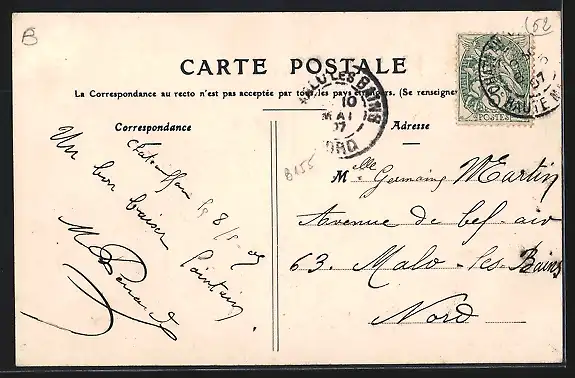 B
62
CARTE POSTALE
La Correspondance au recto n'est pas acceptée par tous les pays étrangers. (Se renseigner
Correspondance
Adresse
MALO LES BAINS
10
MAI
07
NORD
HAUTE M
07
POSTES
B155
le 8/5 07
Un bon baiser
M
Mlle Germaine Martin
Avenue de bel-air
63. Malo-les-Bains
Nord